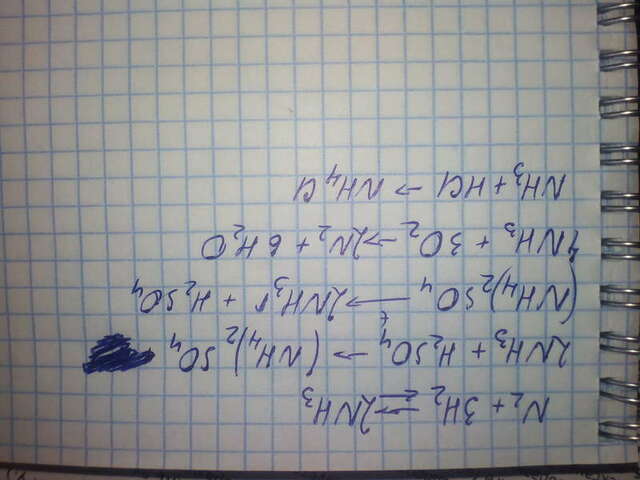 N₂ + 3H₂ ⇌ 2NH₃
2NH₃ + H₂SO₄ → (NH₄)₂SO₄
(NH₄)₂SO₄ →ᵗ 2NH₃↑ + H₂SO₄
4NH₃ + 3O₂ → 2N₂ + 6H₂O
NH₃ + HCl → NH₄Cl